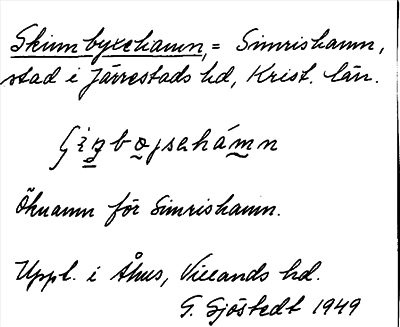 Skumbyxehamn, = Simrishamn,
stad i Järrestads hd, Krist. län.
Öknamn för Simrishamn.
Uppt. i Åhus, Villands hd.
G. Sjöstedt 1949